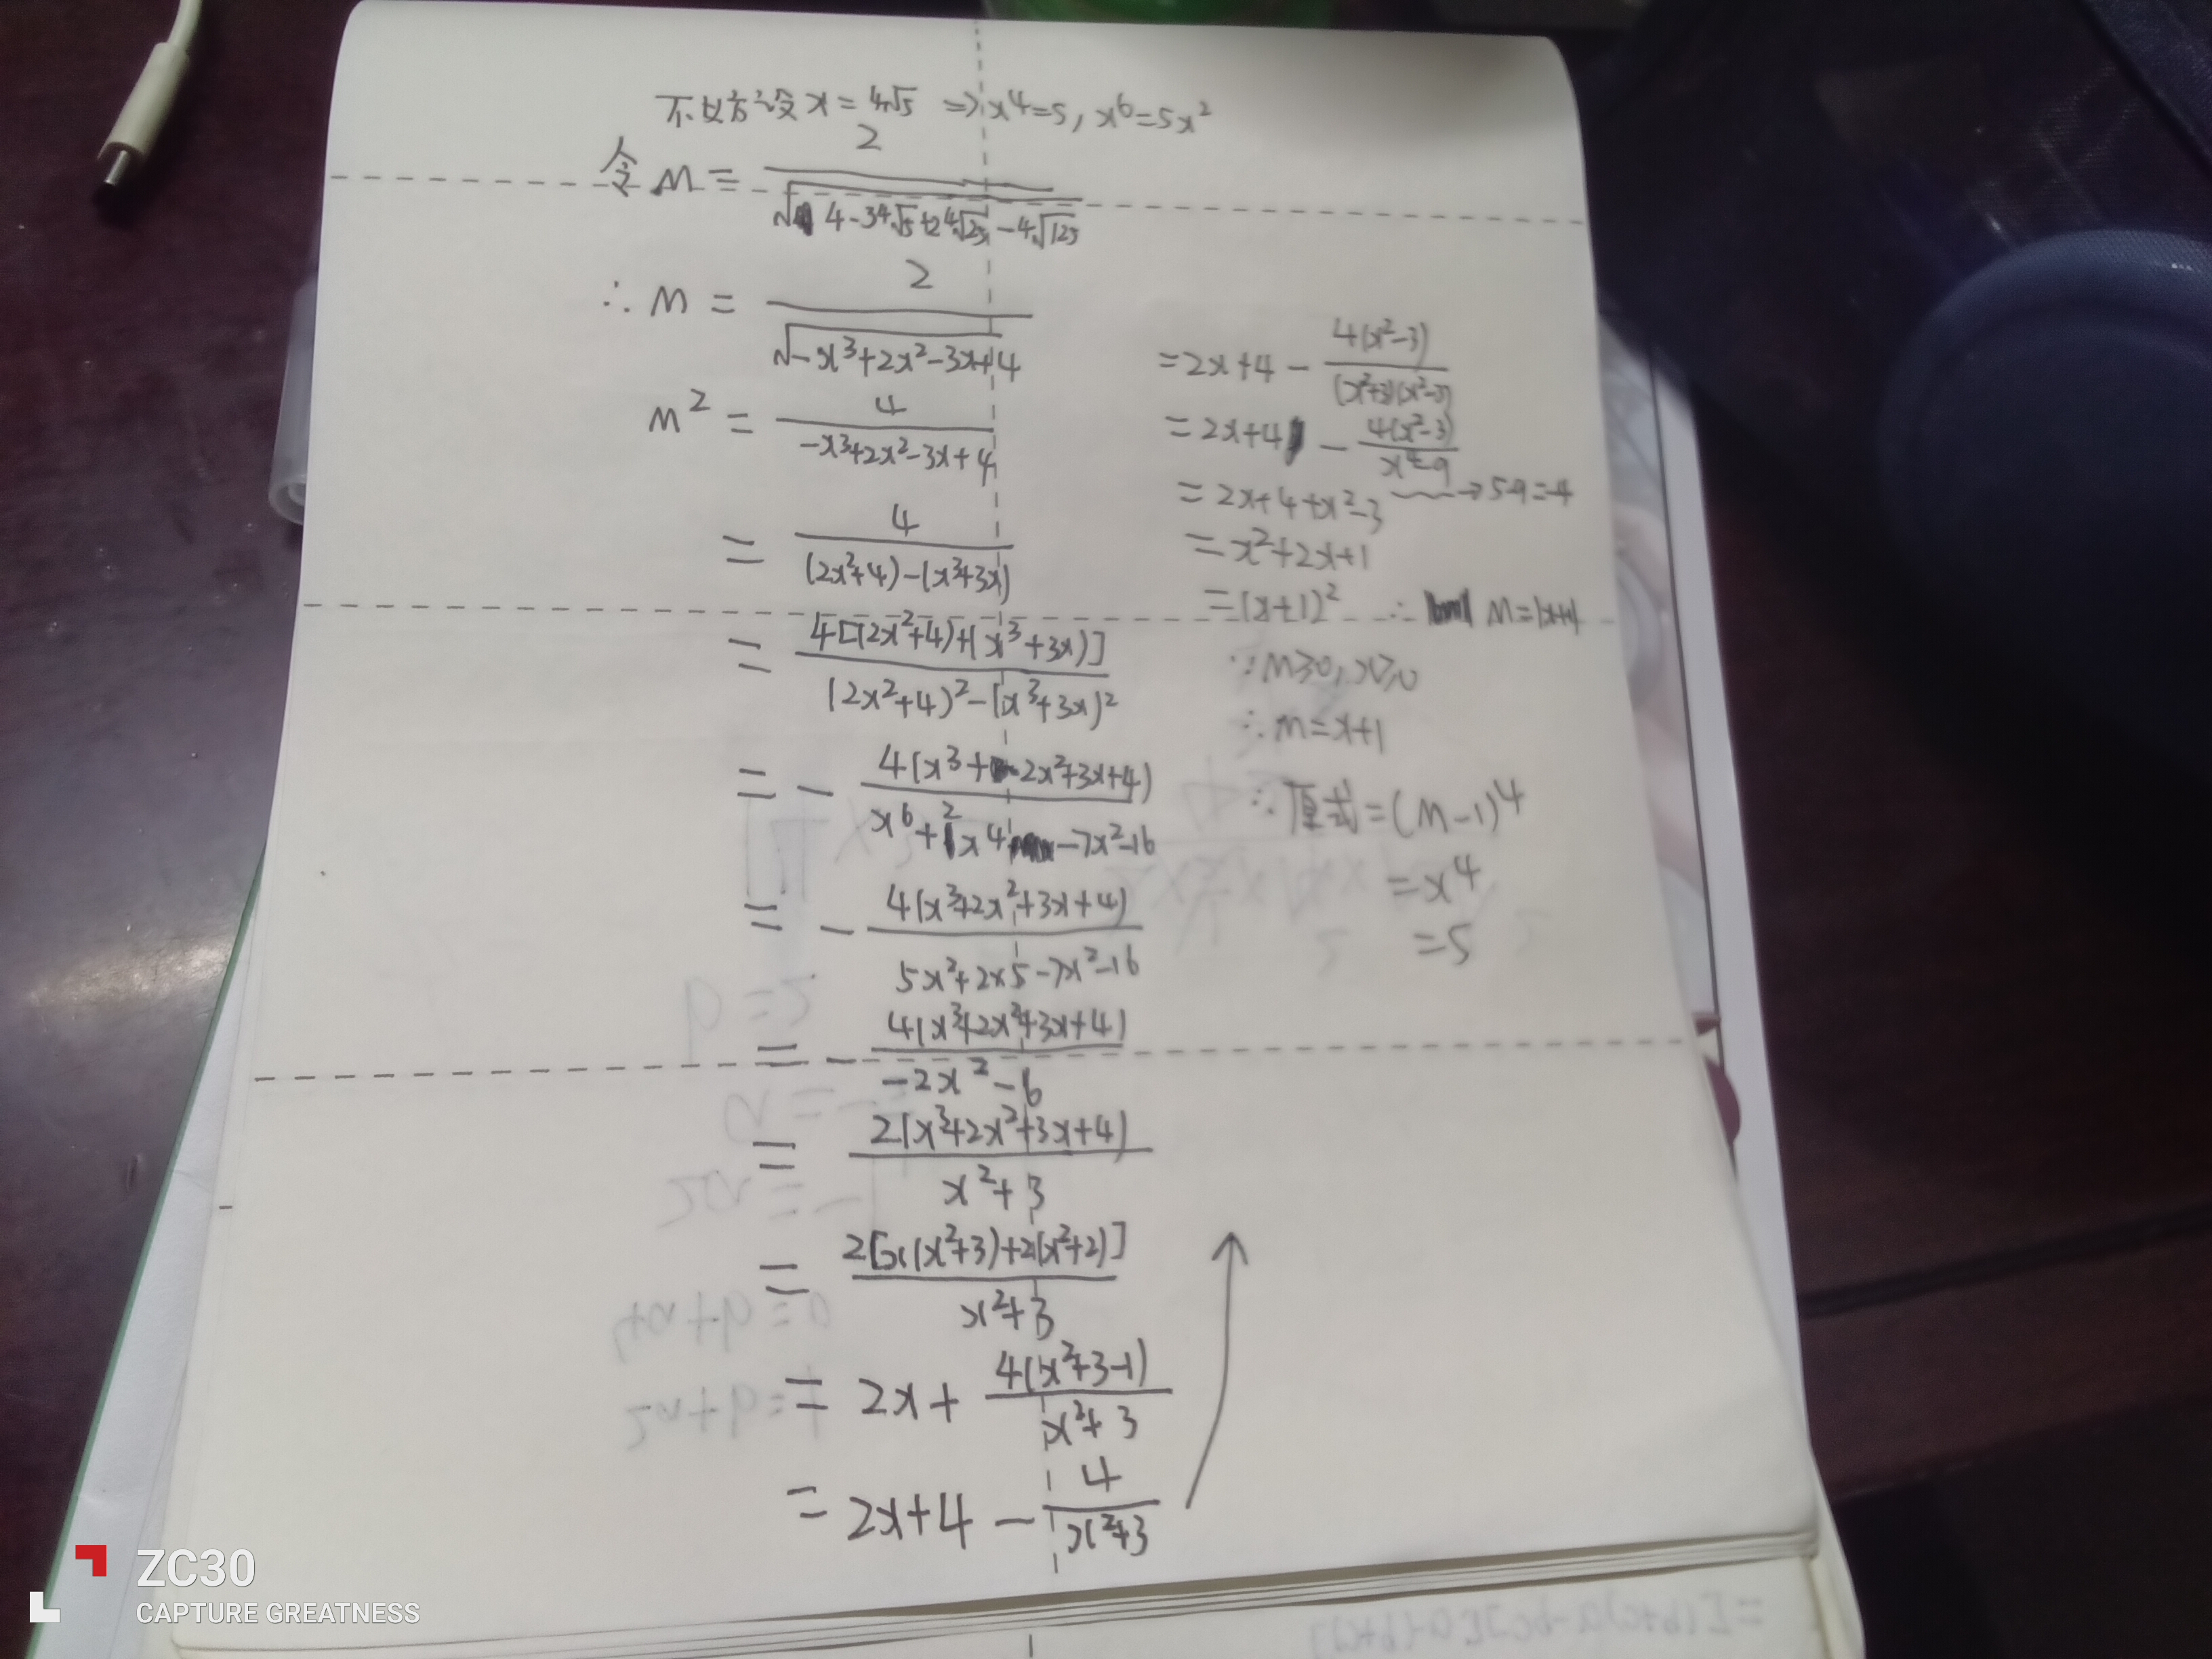 不妨设 x = ⁴√5 => x⁴=5, x⁶=5x²
令 M = 2/√(4-3⁴√5+2⁴√25-⁴√125)
∴ M = 2/√(-x³+2x²-3x+4)
M² = 4/(-x³+2x²-3x+4)
= 4/((2x²+4)-(x³+3x))
= 4[(2x²+4)+(x³+3x)]/((2x²+4)²-(x³+3x)²)
= - 4(x³+2x²+3x+4)/(x⁶+2x⁴-7x²-16)
= - 4(x³+2x²+3x+4)/(5x²+2×5-7x²-16)
= - 4(x³+2x²+3x+4)/(-2x²-6)
= 2(x³+2x²+3x+4)/(x²+3)
= 2[x(x²+3)+2(x²+2)]/(x²+3)
= 2x+ 4(x²+3-1)/(x²+3)
= 2x+4 - 4/(x²+3)
=2x+4 - 4(x²-3)/((x²+3)(x²-3))
=2x+4 - 4(x²-3)/(x⁴-9)
=2x+4+x²-3 → 5-9=-4
=x²+2x+1
=(x+1)² ∴ M=|x+1|
∵ M≥0, x≥0
∴ M=x+1
∴ 原式=(M-1)⁴
=x⁴
=5
ZC30
CAPTURE GREATNESS